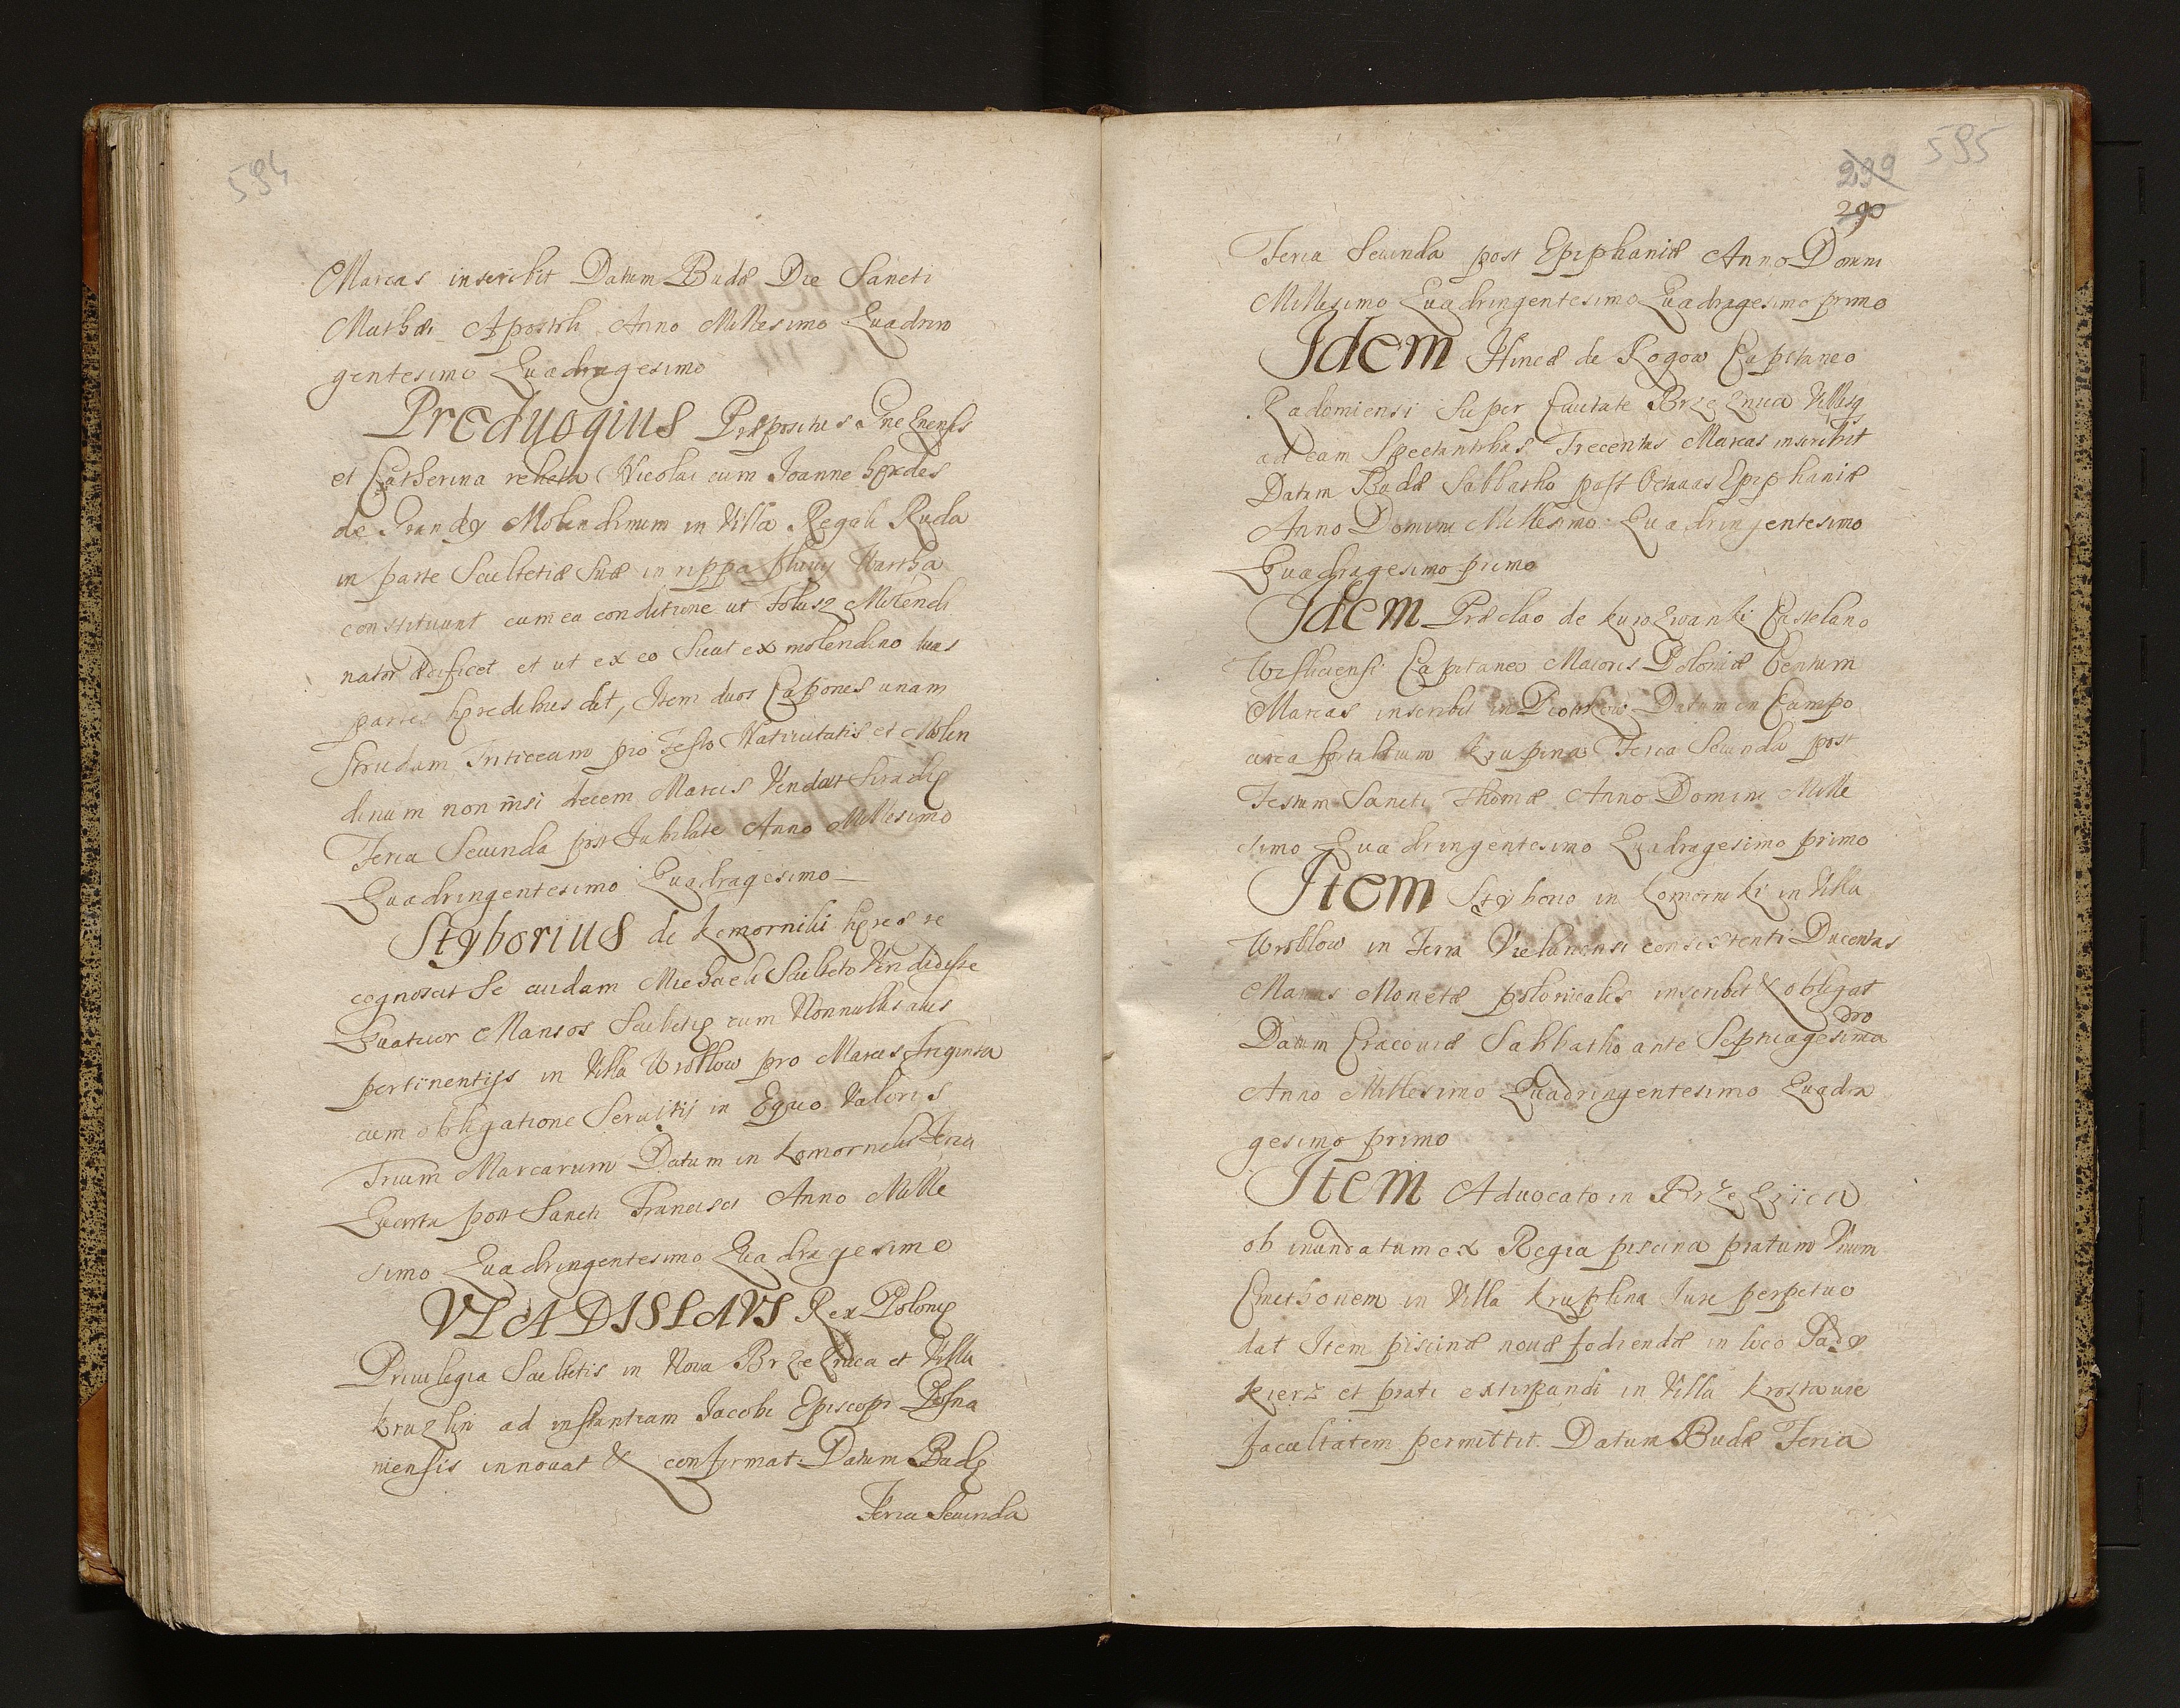 594
Marcas inscribit Datum Budæ Die Sancti
Mathæi Apostoli Anno Millesimo Quadrin
gentesimo Quadragesimo
Preduogius Præpositus Gneznensis
et Catherina relicta Nicolai cum Joanne hęredes
de Grandy Molendinum in Villa Regali Ruda
in parte Scultetiæ Suæ in rippa fluvij Wartha
constituunt cum ea conditione ut Folusz Molendi
nator ædificet et ut ex eo sicut ex molendino duas
partes hęredibus det, Item duos Capones unam
Strudam Triticeam pro Festo Nativitatis et Molen
dinum non nisi decem Marcis Vendat Siradię
Feria Secunda post Jubilate Anno Millesimo
Quadringentesimo Quadragesimo
Styborius de Komorniki hęres re
cognoscit Se cuidam Michaeli Sculteto Vendidisse
Quatuor Mansos Scultetię cum Nonnullis alijs
pertinentijs in Villa Wroblow pro Marcis Triginta
cum obligatione Servitij in Equo Valoris
Trium Marcarum Datum in Komorniki Feria
Quarta post Sancti Francisci Anno Mille
simo Quadringentesimo Quadragesimo
VLADISLAVS Rex Polonię
Privilegia Scultetis in Nova Brzeznica et Villa
Kruzlin ad instantiam Jacobi Episcopi Posna
niensis innovat & confirmat Datum Budę
Feria Secunda
595
299
290
Feria Secunda post Epiphaniæ Anno Domini
Millesimo Quadringentesimo Quadragesimo primo
Idem Hincæ de Rogow Capitaneo
Radomiensi Super Civitate Brzeznica Villisq
ad eam Spectantibus Trecentas Marcas inscribit
Datum Budæ Sabbatho post Octavas Epiphaniæ
Anno Domini Millesimo Quadringentesimo
Quadragesimo primo
Idem Præclao de Kurozwanki Castelano
Wisliciensi Capitaneo Maioris Poloniæ Centum
Marcas inscribit in Piotrkow Datum in Campo
circa fortalitium Krupina Feria Secunda post
Festum Sancti Thomæ Anno Domini Mille
simo Quadringentesimo Quadragesimo primo
Item Styborio in Komorniki in Villa
Wroblow in Terra Vielunensi consistenti Ducentas
Marcas Monetæ polonicalis inscribit & obligat
Datum Cracoviæ Sabbatho ante Septuagesima
dro
Anno Millesimo Quadringentesimo Quadra
gesimo primo
Item Advocato in Brzeznica
ob inundatum ex Regia piscina pratum Vnum
Cmethonem in Villa Kruplina Jure perpetuo
dat Item piscinæ novæ fodiendæ in loco Pady
kierz et prati extirpandi in Villa
facultatem permittit Datum Budæ Feria